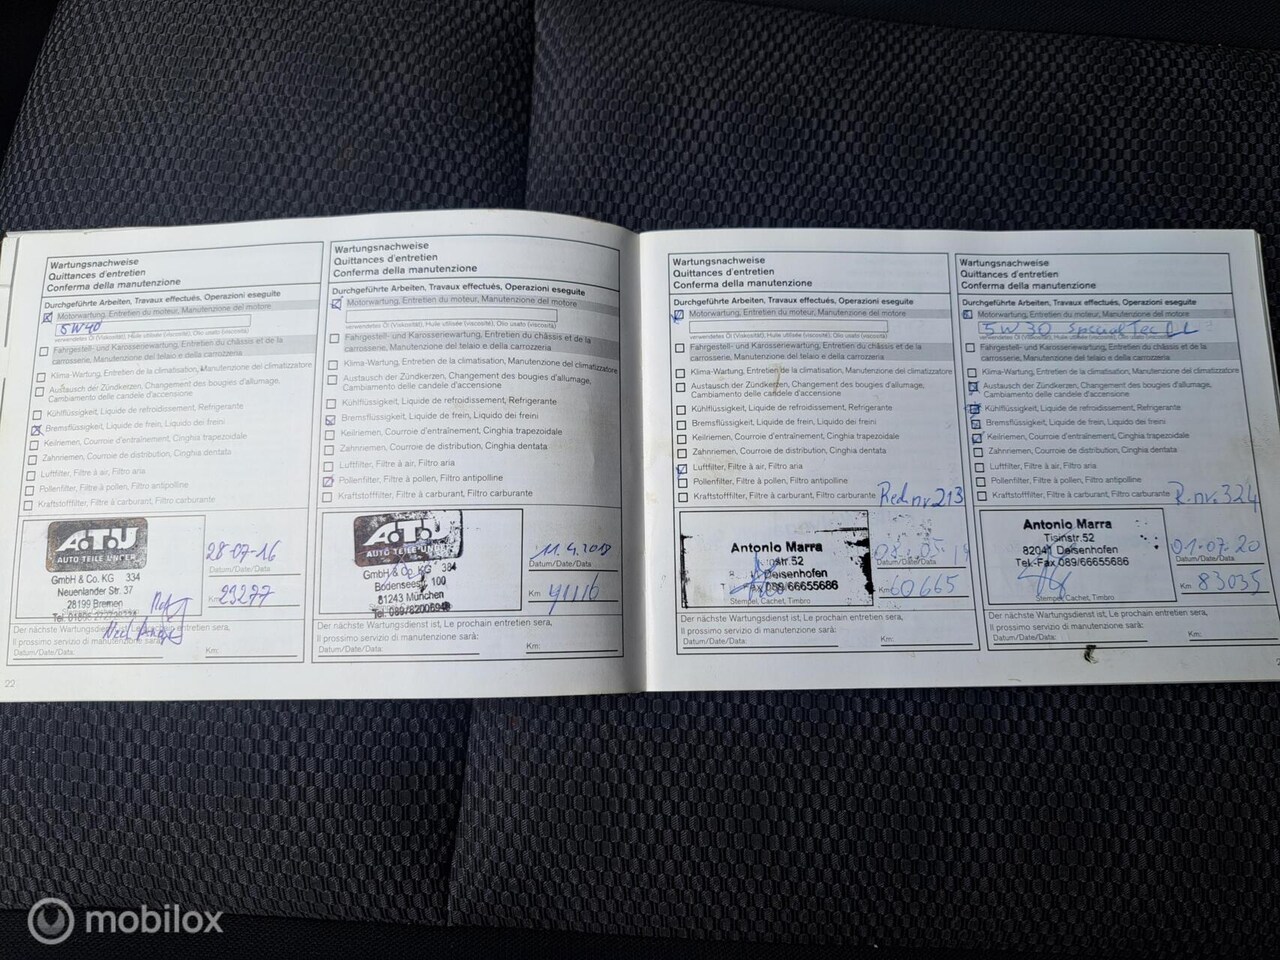 Wartungsnachweise
Quittances d'entretien
Conferma della manutenzione
Durchgeführte Arbeiten, Travaux effectués, Operazioni eseguite
Motorwartung, Entretien du moteur, Manutenzione del motore
5W40
verwendetes Öl (Viskosität), Huile utilisée (viscosité), Olio usato (viscosità)
Fahrgestell- und Karosseriewartung, Entretien du châssis et de la
carrosserie, Manutenzione del telaio e della carrozzeria
Klima-Wartung, Entretien de la climatisation, Manutenzione del climatizzatore
Austausch der Zündkerzen, Changement des bougies d'allumage,
Cambiamento delle candele d'accensione
Kühlflüssigkeit, Liquide de refroidissement, Refrigerante
Bremsflüssigkeit, Liquide de frein, Liquido dei freini
Keilriemen, Courroie d'entraînement, Cinghia trapezoidale
Zahnriemen, Courroie de distribution, Cinghia dentata
Luftfilter, Filtre à air, Filtro aria
Pollenfilter, Filtre à pollen, Filtro antipolline
Kraftstofffilter, Filtre à carburant, Filtro carburante
A.T.U
AUTO TEILE UNGER
GmbH & Co. KG 334
Neuenlander Str. 37
28199 Bremen
28-07-16
Datum/Date/Data:
Km: 29277
Der nächste Wartungsdienst ist, Le prochain entretien sera,
Il prossimo servizio di manutenzione sarà:
Datum/Date/Data: Km:
22
Wartungsnachweise
Quittances d'entretien
Conferma della manutenzione
Durchgeführte Arbeiten, Travaux effectués, Operazioni eseguite
Motorwartung, Entretien du moteur, Manutenzione del motore
verwendetes Öl (Viskosität), Huile utilisée (viscosité), Olio usato (viscosità)
Fahrgestell- und Karosseriewartung, Entretien du châssis et de la
carrosserie, Manutenzione del telaio e della carrozzeria
Klima-Wartung, Entretien de la climatisation, Manutenzione del climatizzatore
Austausch der Zündkerzen, Changement des bougies d'allumage,
Cambiamento delle candele d'accensione
Kühlflüssigkeit, Liquide de refroidissement, Refrigerante
Bremsflüssigkeit, Liquide de frein, Liquido dei freini
Keilriemen, Courroie d'entraînement, Cinghia trapezoidale
Zahnriemen, Courroie de distribution, Cinghia dentata
Luftfilter, Filtre à air, Filtro aria
Pollenfilter, Filtre à pollen, Filtro antipolline
Kraftstofffilter, Filtre à carburant, Filtro carburante
A.T.U
AUTO TEILE UNGER
GmbH & Co. KG 384
Bodenseestr. 100
81243 München
Tel. 089/82006940
11.4.2018
Datum/Date/Data:
Km 41116
Der nächste Wartungsdienst ist, Le prochain entretien sera,
Il prossimo servizio di manutenzione sarà:
Datum/Date/Data: Km:
Wartungsnachweise
Quittances d'entretien
Conferma della manutenzione
Durchgeführte Arbeiten, Travaux effectués, Operazioni eseguite
Motorwartung, Entretien du moteur, Manutenzione del motore
verwendetes Öl (Viskosität), Huile utilisée (viscosité), Olio usato (viscosità)
Fahrgestell- und Karosseriewartung, Entretien du châssis et de la
carrosserie, Manutenzione del telaio e della carrozzeria
Klima-Wartung, Entretien de la climatisation, Manutenzione del climatizzatore
Austausch der Zündkerzen, Changement des bougies d'allumage,
Cambiamento delle candele d'accensione
Kühlflüssigkeit, Liquide de refroidissement, Refrigerante
Bremsflüssigkeit, Liquide de frein, Liquido dei freini
Keilriemen, Courroie d'entraînement, Cinghia trapezoidale
Zahnriemen, Courroie de distribution, Cinghia dentata
Luftfilter, Filtre à air, Filtro aria
Pollenfilter, Filtre à pollen, Filtro antipolline
Kraftstofffilter, Filtre à carburant, Filtro carburante
nr. 213
Antonio Marra
str.52
Deisenhofen
089/66655686
Datum/Date/Data:
Km 60665
Stempel, Cachet, Timbro
Der nächste Wartungsdienst ist, Le prochain entretien sera,
Il prossimo servizio di manutenzione sarà:
Datum/Date/Data: Km:
Wartungsnachweise
Quittances d'entretien
Conferma della manutenzione
Durchgeführte Arbeiten, Travaux effectués, Operazioni eseguite
Motorwartung, Entretien du moteur, Manutenzione del motore
5W30 Special Tec
verwendetes Öl (Viskosität), Huile utilisée (viscosité), Olio usato (viscosità)
Fahrgestell- und Karosseriewartung, Entretien du châssis et de la
carrosserie, Manutenzione del telaio e della carrozzeria
Klima-Wartung, Entretien de la climatisation, Manutenzione del climatizzatore
Austausch der Zündkerzen, Changement des bougies d'allumage,
Cambiamento delle candele d'accensione
Kühlflüssigkeit, Liquide de refroidissement, Refrigerante
Bremsflüssigkeit, Liquide de frein, Liquido dei freini
Keilriemen, Courroie d'entraînement, Cinghia trapezoidale
Zahnriemen, Courroie de distribution, Cinghia dentata
Luftfilter, Filtre à air, Filtro aria
Pollenfilter, Filtre à pollen, Filtro antipolline
Kraftstofffilter, Filtre à carburant, Filtro carburante
R.nr. 324
Antonio Marra
Tisinstr.52
82041 Deisenhofen
Tel.-Fax 089/66655686
01.07.20
Datum/Date/Data:
Km 83035
Stempel, Cachet, Timbro
Der nächste Wartungsdienst ist, Le prochain entretien sera,
Il prossimo servizio di manutenzione sarà:
Datum/Date/Data: Km:
mobilox